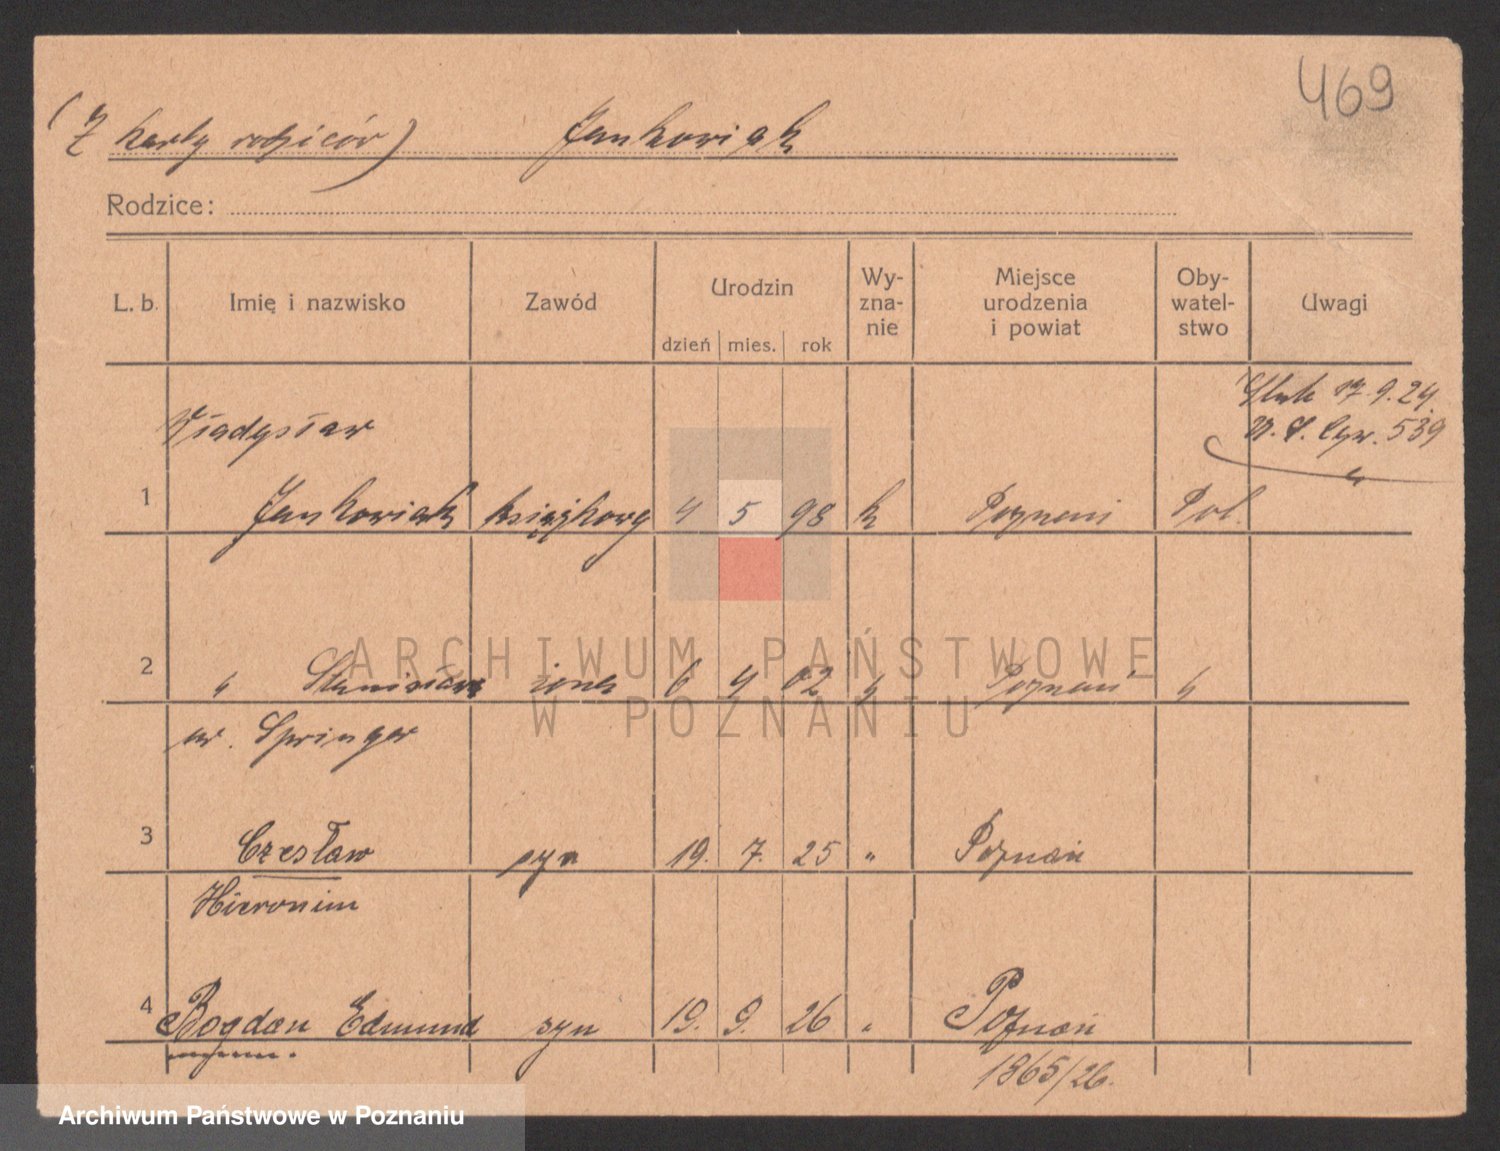 469
(Z karty rodziców) Jankowiak
Rodzice:
L. b. Imię i nazwisko Zawód Urodzin Wy-zna-nie Miejsce urodzenia i powiat Oby-watel-stwo Uwagi
dzień mies. rok
17.9.24
U. S. Cyw. 539
Władysław
1 Jankowiak księgowy 4 5 98 k Poznań Pol.
2 " Stanisława żona 6 4 02 " Poznań "
ur. Springer
3 Czesław syn 19. 7. 25 " Poznań
Hieronim
4 Bogdan Edmund syn 19. 9. 26 " Poznań
1865/26.
ARCHIWUM PAŃSTWOWE
W POZNANIU
Archiwum Państwowe w Poznaniu